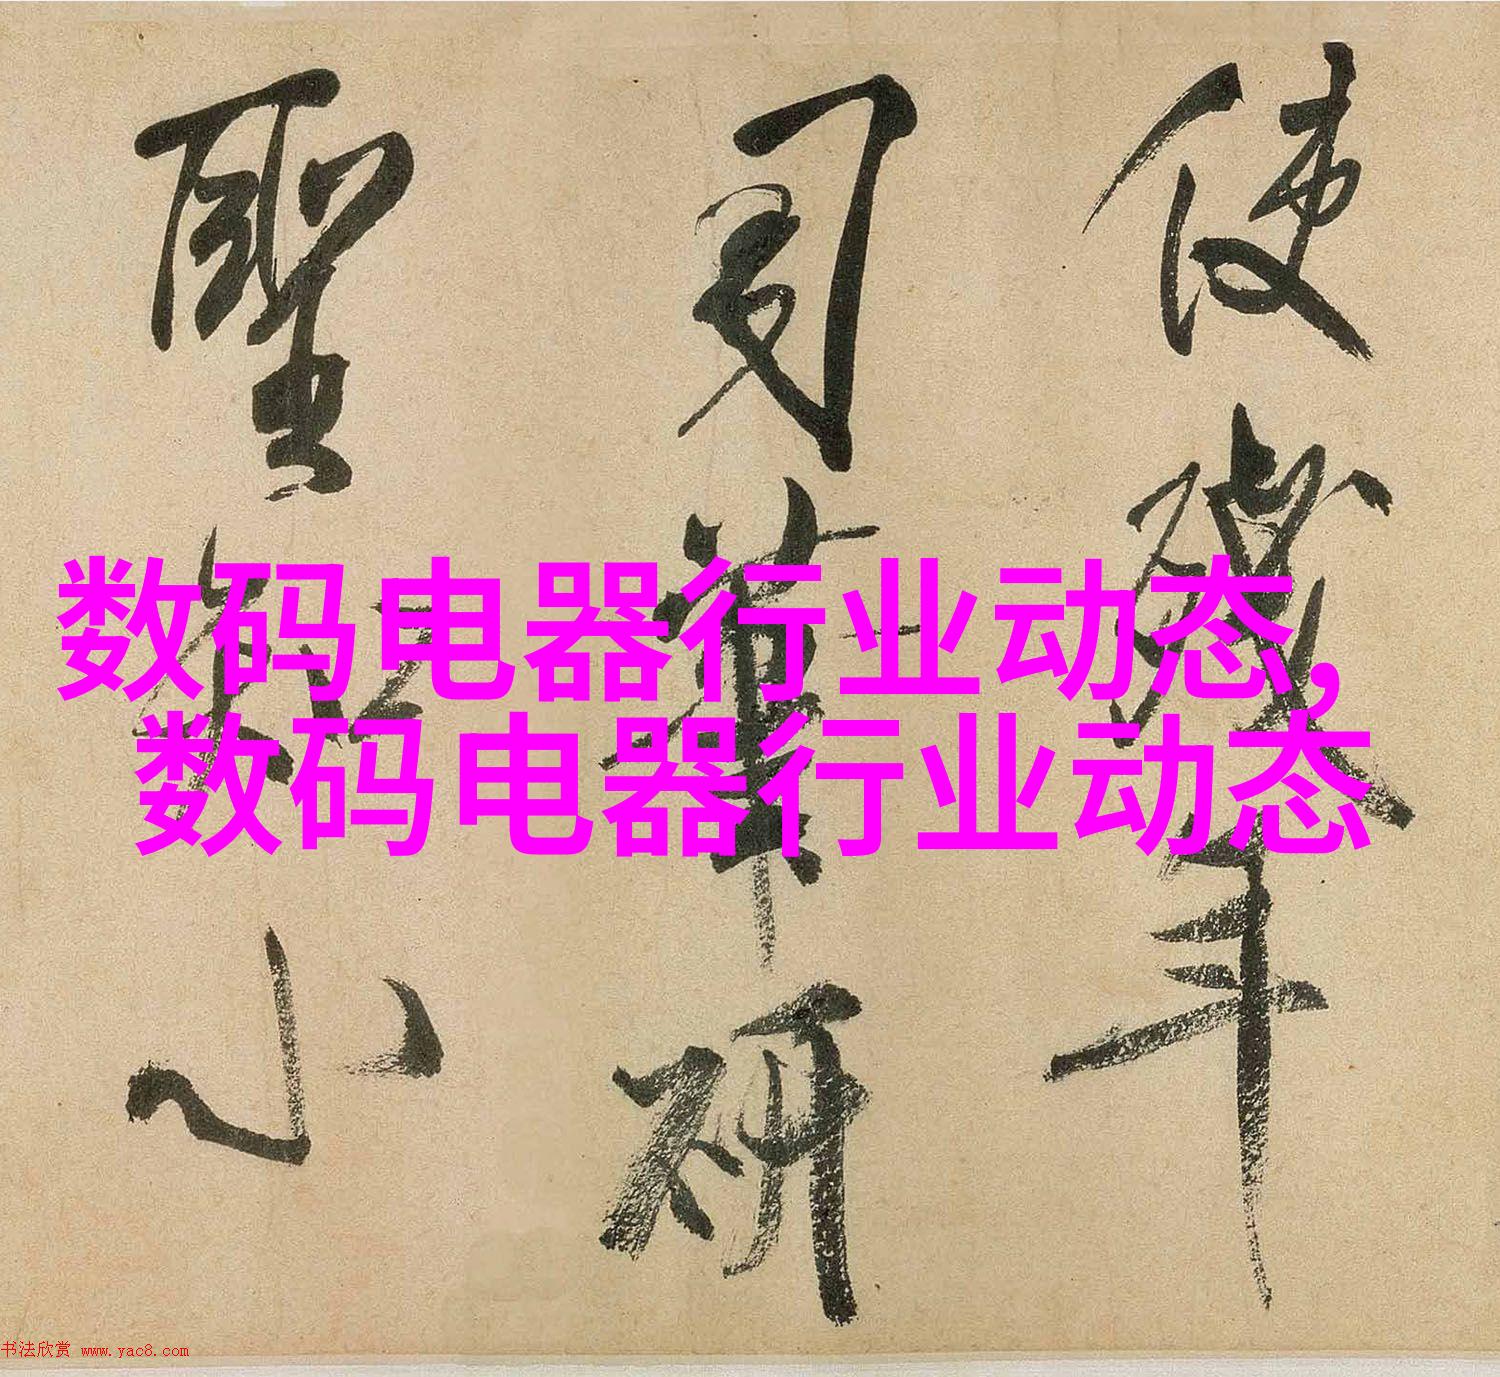 数码电器行业动态,
数码电器行业动态
使 年
研
聖知小
书法欣赏 www.yac8.com